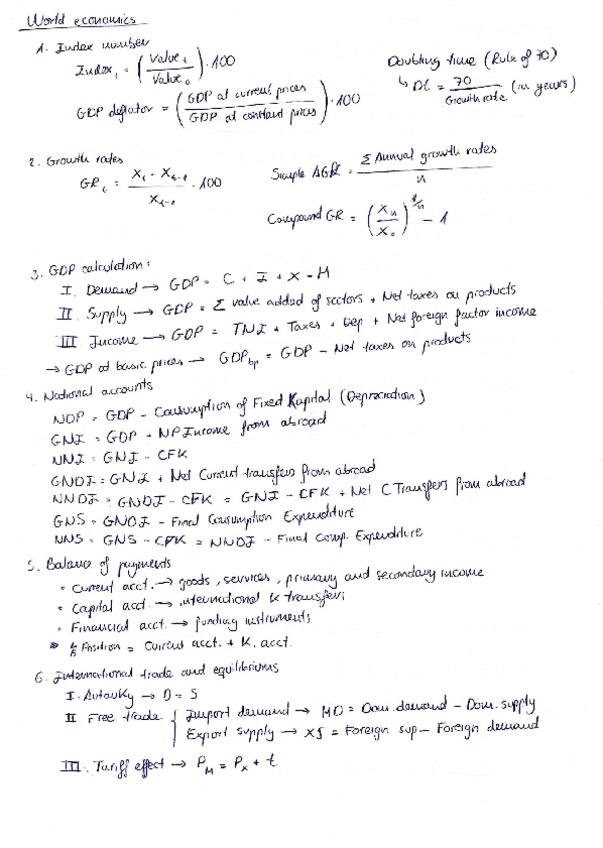 World economics
1. Index number
Index₁ = (Value₁ / Value₀) · 100
Doubling time (Rule of 70)
↳ Dt = 70 / Growth rate (in years)
GDP deflator = (GDP at current prices / GDP at constant prices) · 100
2. Growth rates
GRₜ = Xₜ - Xₜ₋₁ / Xₜ₋₁ · 100
Simple AGR = Σ Annual growth rates / n
Compound GR = (Xₙ / X₀)^1/n - 1
3. GDP calculation:
I. Demand → GDP = C + I + X - M
II. Supply → GDP = Σ value added of sectors + Net taxes on products
III Income → GDP = TNI + Taxes + Dep + Net foreign factor income
→ GDP at basic prices → GDP_bp = GDP - Net taxes on products
4. National accounts
NDP = GDP - Consumption of Fixed Kapital (Depreciation)
GNI = GDP + NP Income from abroad
NNI = GNI - CFK
GNDI = GNI + Net Current transfers from abroad
NNDI = GNDI - CFK = GNI - CFK + Net C Transfers from abroad
GNS = GNDI - Final Consumption Expenditure
NNS = GNS - CFK = NNDI - Final Comp. Expenditure
5. Balance of payments
• Current acct. → goods, services, primary and secondary income
• Capital acct. → international K transfers
• Financial acct. → funding instruments
Position = Current acct. + K. acct.
6. International trade and equilibriums
I. Autarky → D = S
II Free trade { Import demand → MD = Dom. demand - Dom. supply
Export supply → XS = Foreign sup - Foreign demand
III. Tariff effect → P_M = P_X + t